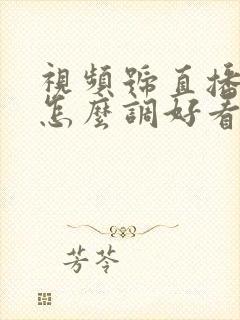 視頻號直播
怎麼調好看
芳苓